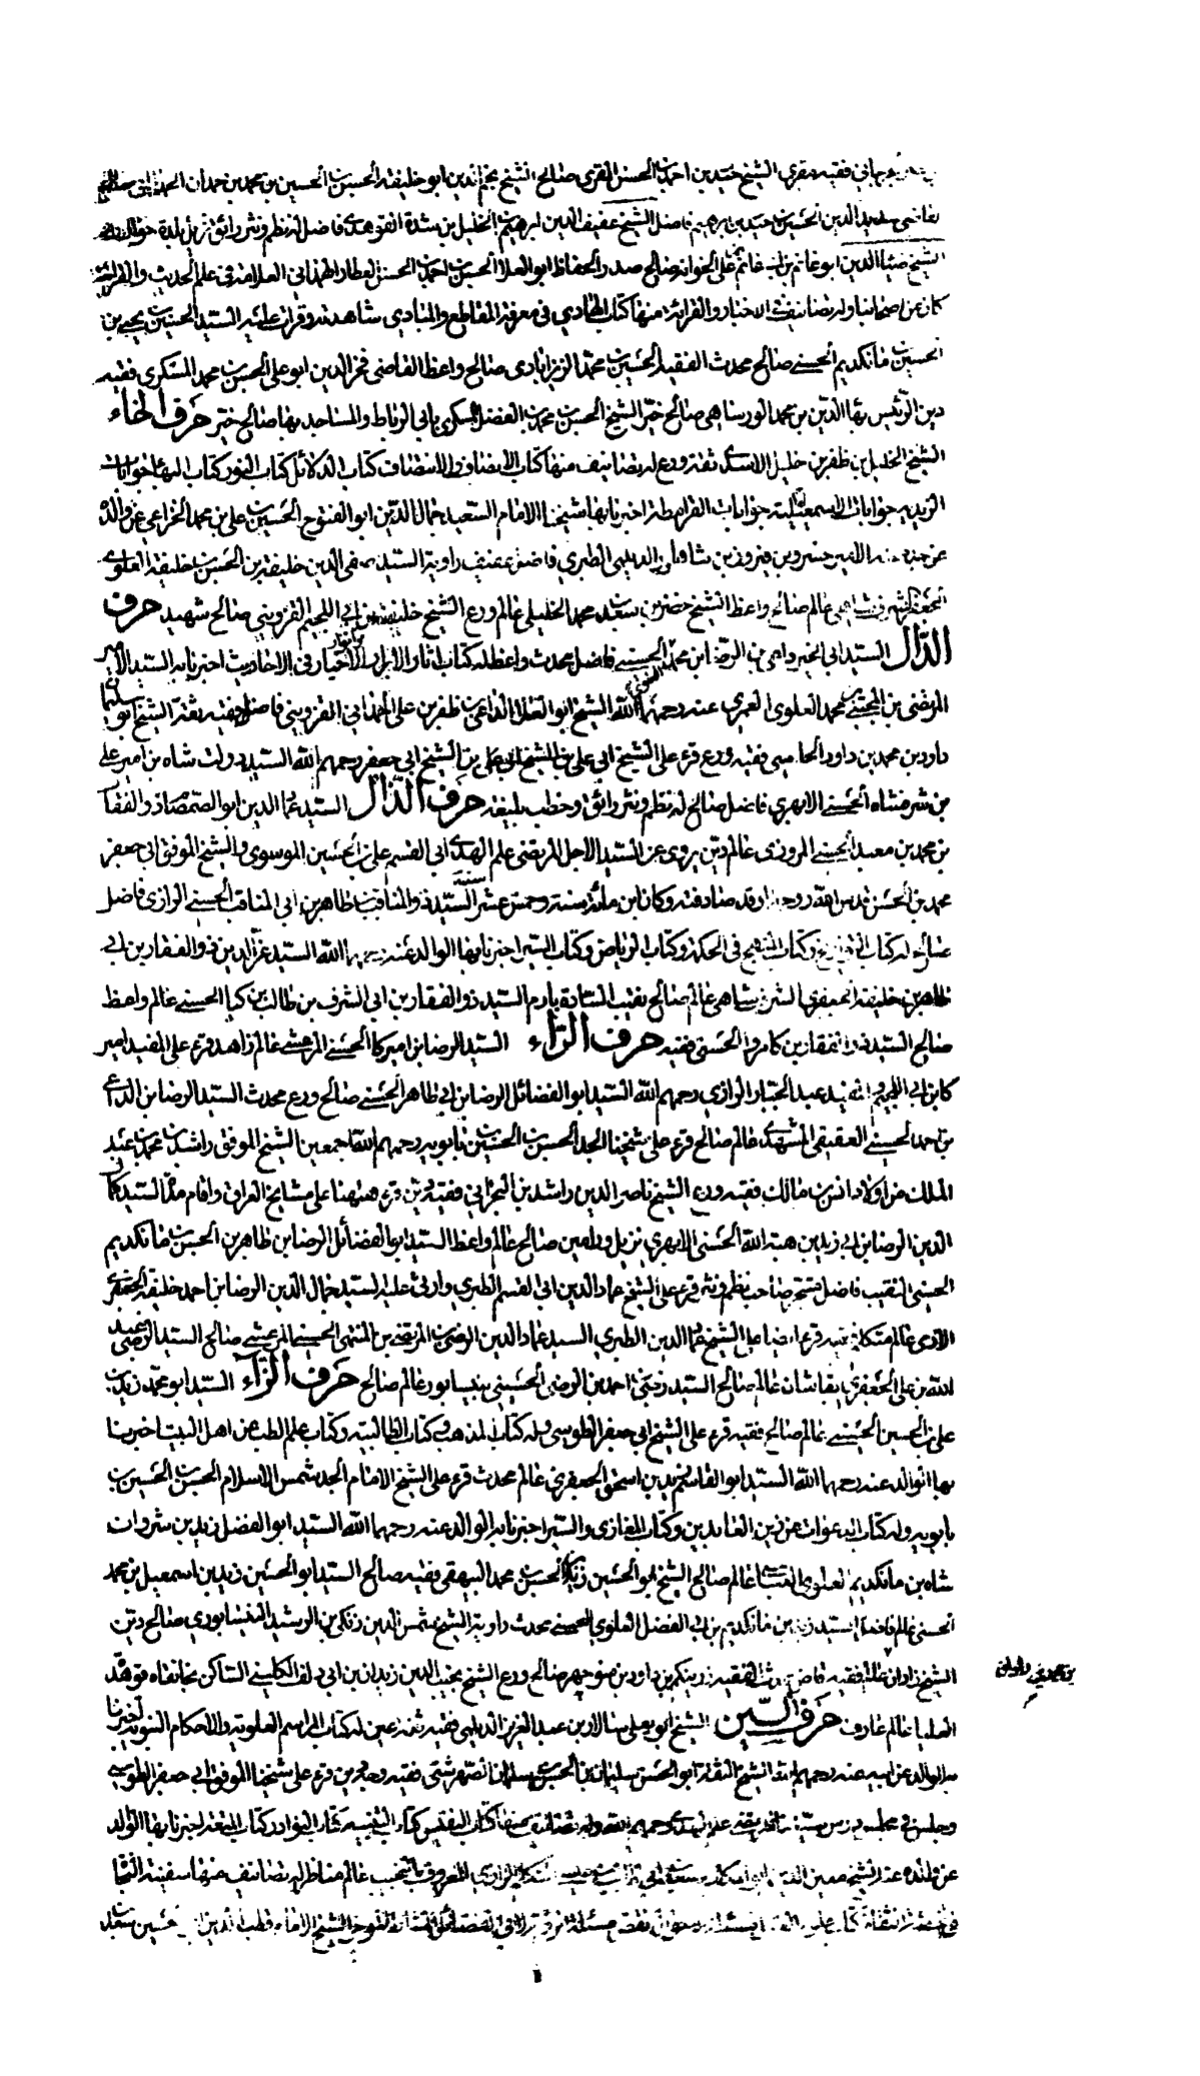 فقيه مقرئ الشيخ حيدر بن احمد بن الحسن المقرى صالح الشيخ نجم الدين ابو خليفه الحسين بن الحسين بن محمد بن حمدان الحمداني صالح
القاضي سديد الدين الحسين بن حيدر بن ابرهيم فاضل الشيخ عفيف الدين ابرهيم بن الخليل بن شدة القوهدى فاضل له نظم ونثر رائق نزيل بلدة خوار
الشيخ ضياء الدين ابو غانم بن علي بن غانم الجوانه صالح صدر الحفاظ ابو العلا الحسن بن احمد بن الحسن العطار الهمداني العلامه في علم الحديث والقرائة
كان من اصحابنا وله تصانيف في الاخبار والقرائة منها كتاب الهادي في معرفة المقاطع والمبادي شاهدته وقرات عليه السيد الحسين بن يحيى بن
الحسين بن مانكديم الحسيني صالح محدث الفقيه الحسين بن محمد الزينابادى صالح واعظ القاضي فخر الدين ابو علي الحسين بن محمد العسكرى فقيه
دين الرئيس بهاء الدين بن محمد الورساهى صالح خير الشيخ الحسين بن محمد بن الفضل العسكرى باني الرباط والمساجد بها صالح خير حرف الخاء
الشيخ الخليل بن ظفر بن خليل الاسدى ثقة ورع له تصانيف منها كتاب الانصاف والانتصاف كتاب الدلائل كتاب النور كتاب البهاء جوابات
الزيديه جوابات الاسمعيليه جوابات القرامطة اخبرنا بها شيخنا الامام السعيد جمال الدين ابو الفتوح الحسين بن علي بن محمد الخزاعي عن والده
عن جده عنه الامير خسرو بن فيروز بن شاهاور الديلمي الطبري فاضل عفيف راوية السيد صفي الدين خليفة بن الحسن بن خليفة العلوى
الجعفرى عالم صالح واعظ الشيخ خضر بن سعد بن محمد الخليلي عالم ورع الشيخ خليفة بن ابي اللجيم القزويني صالح شهيد حرف
الدال السيد ابي الخير داعي بن الرضا بن محمد الحسيني فاضل محدث واعظ له كتاب اثار الابرار وانوار الاخيار في الاحاديث اخبرنا به السيد الاصيل
المرتضى بن المجتبى بن محمد العلوى العمري عنه رحمهما الله الشيخ ابو الفضل الداعي بن ظفر بن علي الحمداني القزويني فاضل فقيه ثقة الشيخ ابو سليمان
داود بن محمد بن داود الحاسبي فقيه ورع قرء على الشيخ ابي علي بن الشيخ ابي جعفر رحمهم الله السيد دولت شاه بن امير علي
بن شرفشاه الحسني الابهري فاضل صالح له نظم ونثر رائق وخطب بليغه حرف الذال السيد عماد الدين ابو الصمصام ذو الفقار
بن محمد بن معبد الحسيني المروزى عالم دين يروى عن السيد الاجل المرتضى علم الهدى ابي القسم علي بن الحسين الموسوى والشيخ الموفق ابي جعفر
محمد بن الحسن قدس الله روحهما وقد صادفته وكان ابن مائة سنة وخمس عشر سنة السيد ذو المناقب بن طاهر بن ابي المناقب الحسيني الرازى فاضل
صالح له كتاب التواريخ وكتاب المنهج في الحكمة وكتاب الرياض وكتاب السير اخبرنا بها الوالد عنه رحمهما الله السيد عز الدين ذو الفقار بن ابي
طاهر بن خليفه الجعفرى الشرفشاهى عالم صالح نقيب السادة بارم السيد ذو الفقار بن ابي الشرف بن طالب كيا الحسني عالم واعظ
صالح السيد ذو الفقار بن كامروا الحسني فقيه حرف الراء السيد الرضا بن اميركا الحسيني المرعشي عالم زاهد قرء على المفيد امير
كا بن ابي اللجيم والمفيد عبد الجبار الرازي رحمهم الله السيد ابو الفضائل الرضا بن ابي طاهر الحسني صالح ورع محدث السيد الرضا بن الداعي
بن احمد الحسيني العقيقي المشهدى عالم صالح قرء على شيخنا الجد الحسن بن الحسين بن بابويه رحمهم الله اجمعين الشيخ الموفق راشد بن محمد بن عبد
الملك من اولاد انس بن مالك فقيه ورع الشيخ ناصر الدين راشد بن ابراهيم البحراني فقيه دين قرء ههنا على مشايخ العراق واقام مدة السيد كمال
الدين الرضا بن ابي زيد بن هبة الله الحسني الابهرى نزيل ورامين صالح عالم واعظ السيد ابو الفضائل الرضا بن طاهر بن الحسن بن مانكديم
الحسيني النقيب فاضل متبحر صاحب نظم ونثر قرء على الشيخ عماد الدين ابي القسم الطبري وارى عليه السيد جمال الدين الرضا بن احمد بن خليفه الجعفرى
الارمى عالم متكلم فقيه قرء ايضا على الشيخ عماد الدين الطبري السيد عماد الدين الرضى بن المرتضى بن المنتهى الحسيني المرعشي صالح السيد الرضى بن عبد
الله بن علي الجعفرى بقاشان عالم صالح السيد رضى بن احمد بن الرضى الحسيني بنيسابور عالم صالح حرف الزاء السيد ابو محمد زيد بن
علي بن الحسين الحسيني عالم صالح فقيه قرء على الشيخ ابي جعفر الطوسي وله كتاب المذهب وكتاب الطالبيه وكتاب علم الطب عن اهل البيت اخبرنا
بها الوالد عنه رحمهما الله السيد ابو القاسم زيد بن اسحق الجعفرى عالم محدث قرء على الشيخ الامام الجد شمس الاسلام الحسن بن الحسين بن
بابويه وله كتاب الدعوات عن زين العابدين وكتاب المغازى والسير اخبرنا به الوالد عنه رحمهما الله السيد ابو الفضل زيد بن شروان
شاه بن مانكديم العلوى العباسي عالم صالح الشيخ ابو الحسين زيد بن الحسن بن محمد البيهقي فقيه صالح السيد ابو الحسين زيد بن اسمعيل بن محمد
الحسني عالم فاضل السيد زيد بن مانكديم بن ابي الفضل العلوى الحسني محدث راوية الشيخ شمس الدين زنكى بن الرشيد النيسابوري صالح دين
الشيخ زادان عالم فقيه فاضل الفقيه زرينكم بن داود بن منوچهر صالح ورع الشيخ نجيب الدين زيدان بن ابي دلف الكليني الساكن بخانقاه قوهد
العليا عالم عارف حرف السين الشيخ ابو يعلى سالار بن عبد العزيز الديلمي فقيه ثقه عين له كتاب المراسم العلويه والاحكام النبويه اخبرنا
به الوالد عن ابيه عنه رحمهم الله الشيخ الثقه ابو الحسن سليمان بن الحسن بن سلمان الصهرشتي فقيه وجه دين قرء على شيخنا الموفق ابي جعفر الطوسي
وجلس في مجلس درس سيدنا المرتضى علم الهدى رحمهم الله وله تصانيف منها كتاب النفيس كتاب التنبيه كتاب النوادر كتاب المتعه اخبرنا بها الوالد
عن والده عنه الشيخ معين الدين المعروف بالنجيب عالم مناظر له تصانيف منها سفينة النجاة
نقض مسئلة الرؤية لابي الفضائل المشاط الشيخ الامام قطب الدين ابو الحسين سعيد